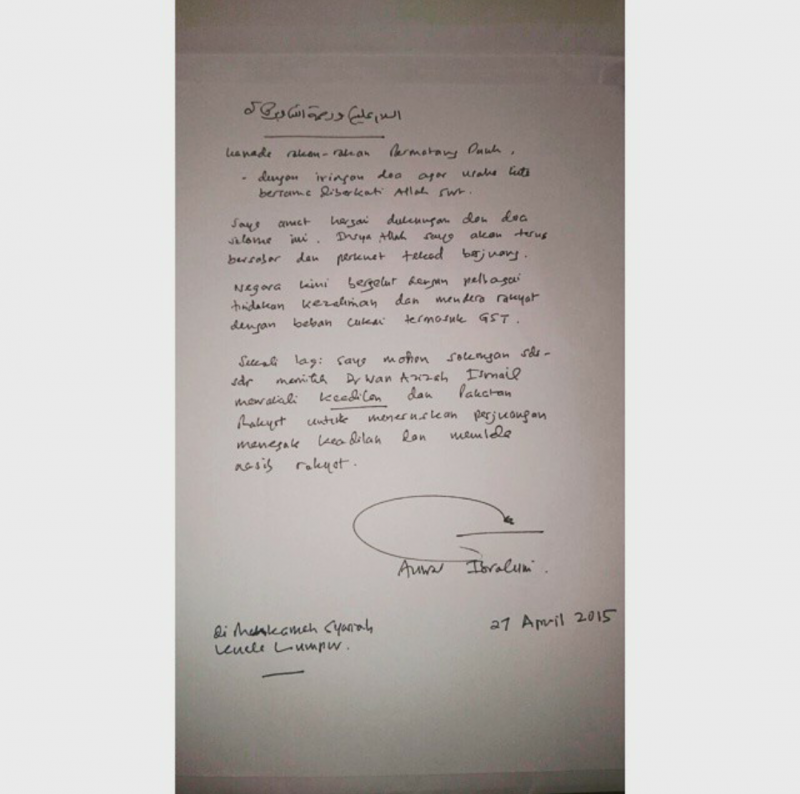 السلام عليكم ورحمة الله وبركاته
Kepada rakan-rakan Permatang Pauh,
- dengan iringan doa agar usaha kita
bersama diberkati Allah swt.
Saya amat hargai dukungan dan doa
selama ini. Insya Allah saya akan terus
bersabar dan perkuat tekad berjuang.
Negara kini bergelut dengan pelbagai
tindakan kezaliman dan mendera rakyat
dengan beban cukai termasuk GST.
Sekali lagi saya mohon sokongan sdr-
sdr memilih Dr Wan Azizah Ismail
mewakili keadilan dan Pakatan
Rakyat untuk meneruskan perjuangan
menegak keadilan dan membela
nasib rakyat.
Anwar Ibrahim.
di Mahkamah Syariah
Kuala Lumpur.
27 April 2015